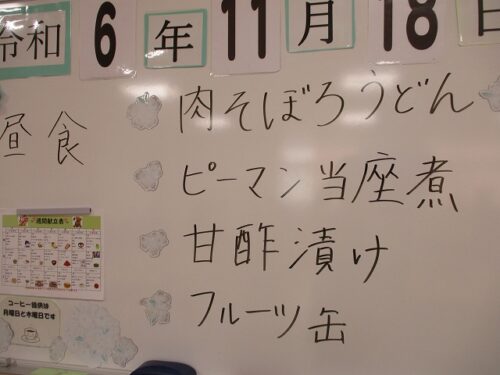 令和 6 年 11 月 18 日
昼食
肉そぼろうどん
ピーマン当座煮
甘酢漬け
フルーツ缶
週間献立表
コーヒー提供は
月曜日と木曜日です